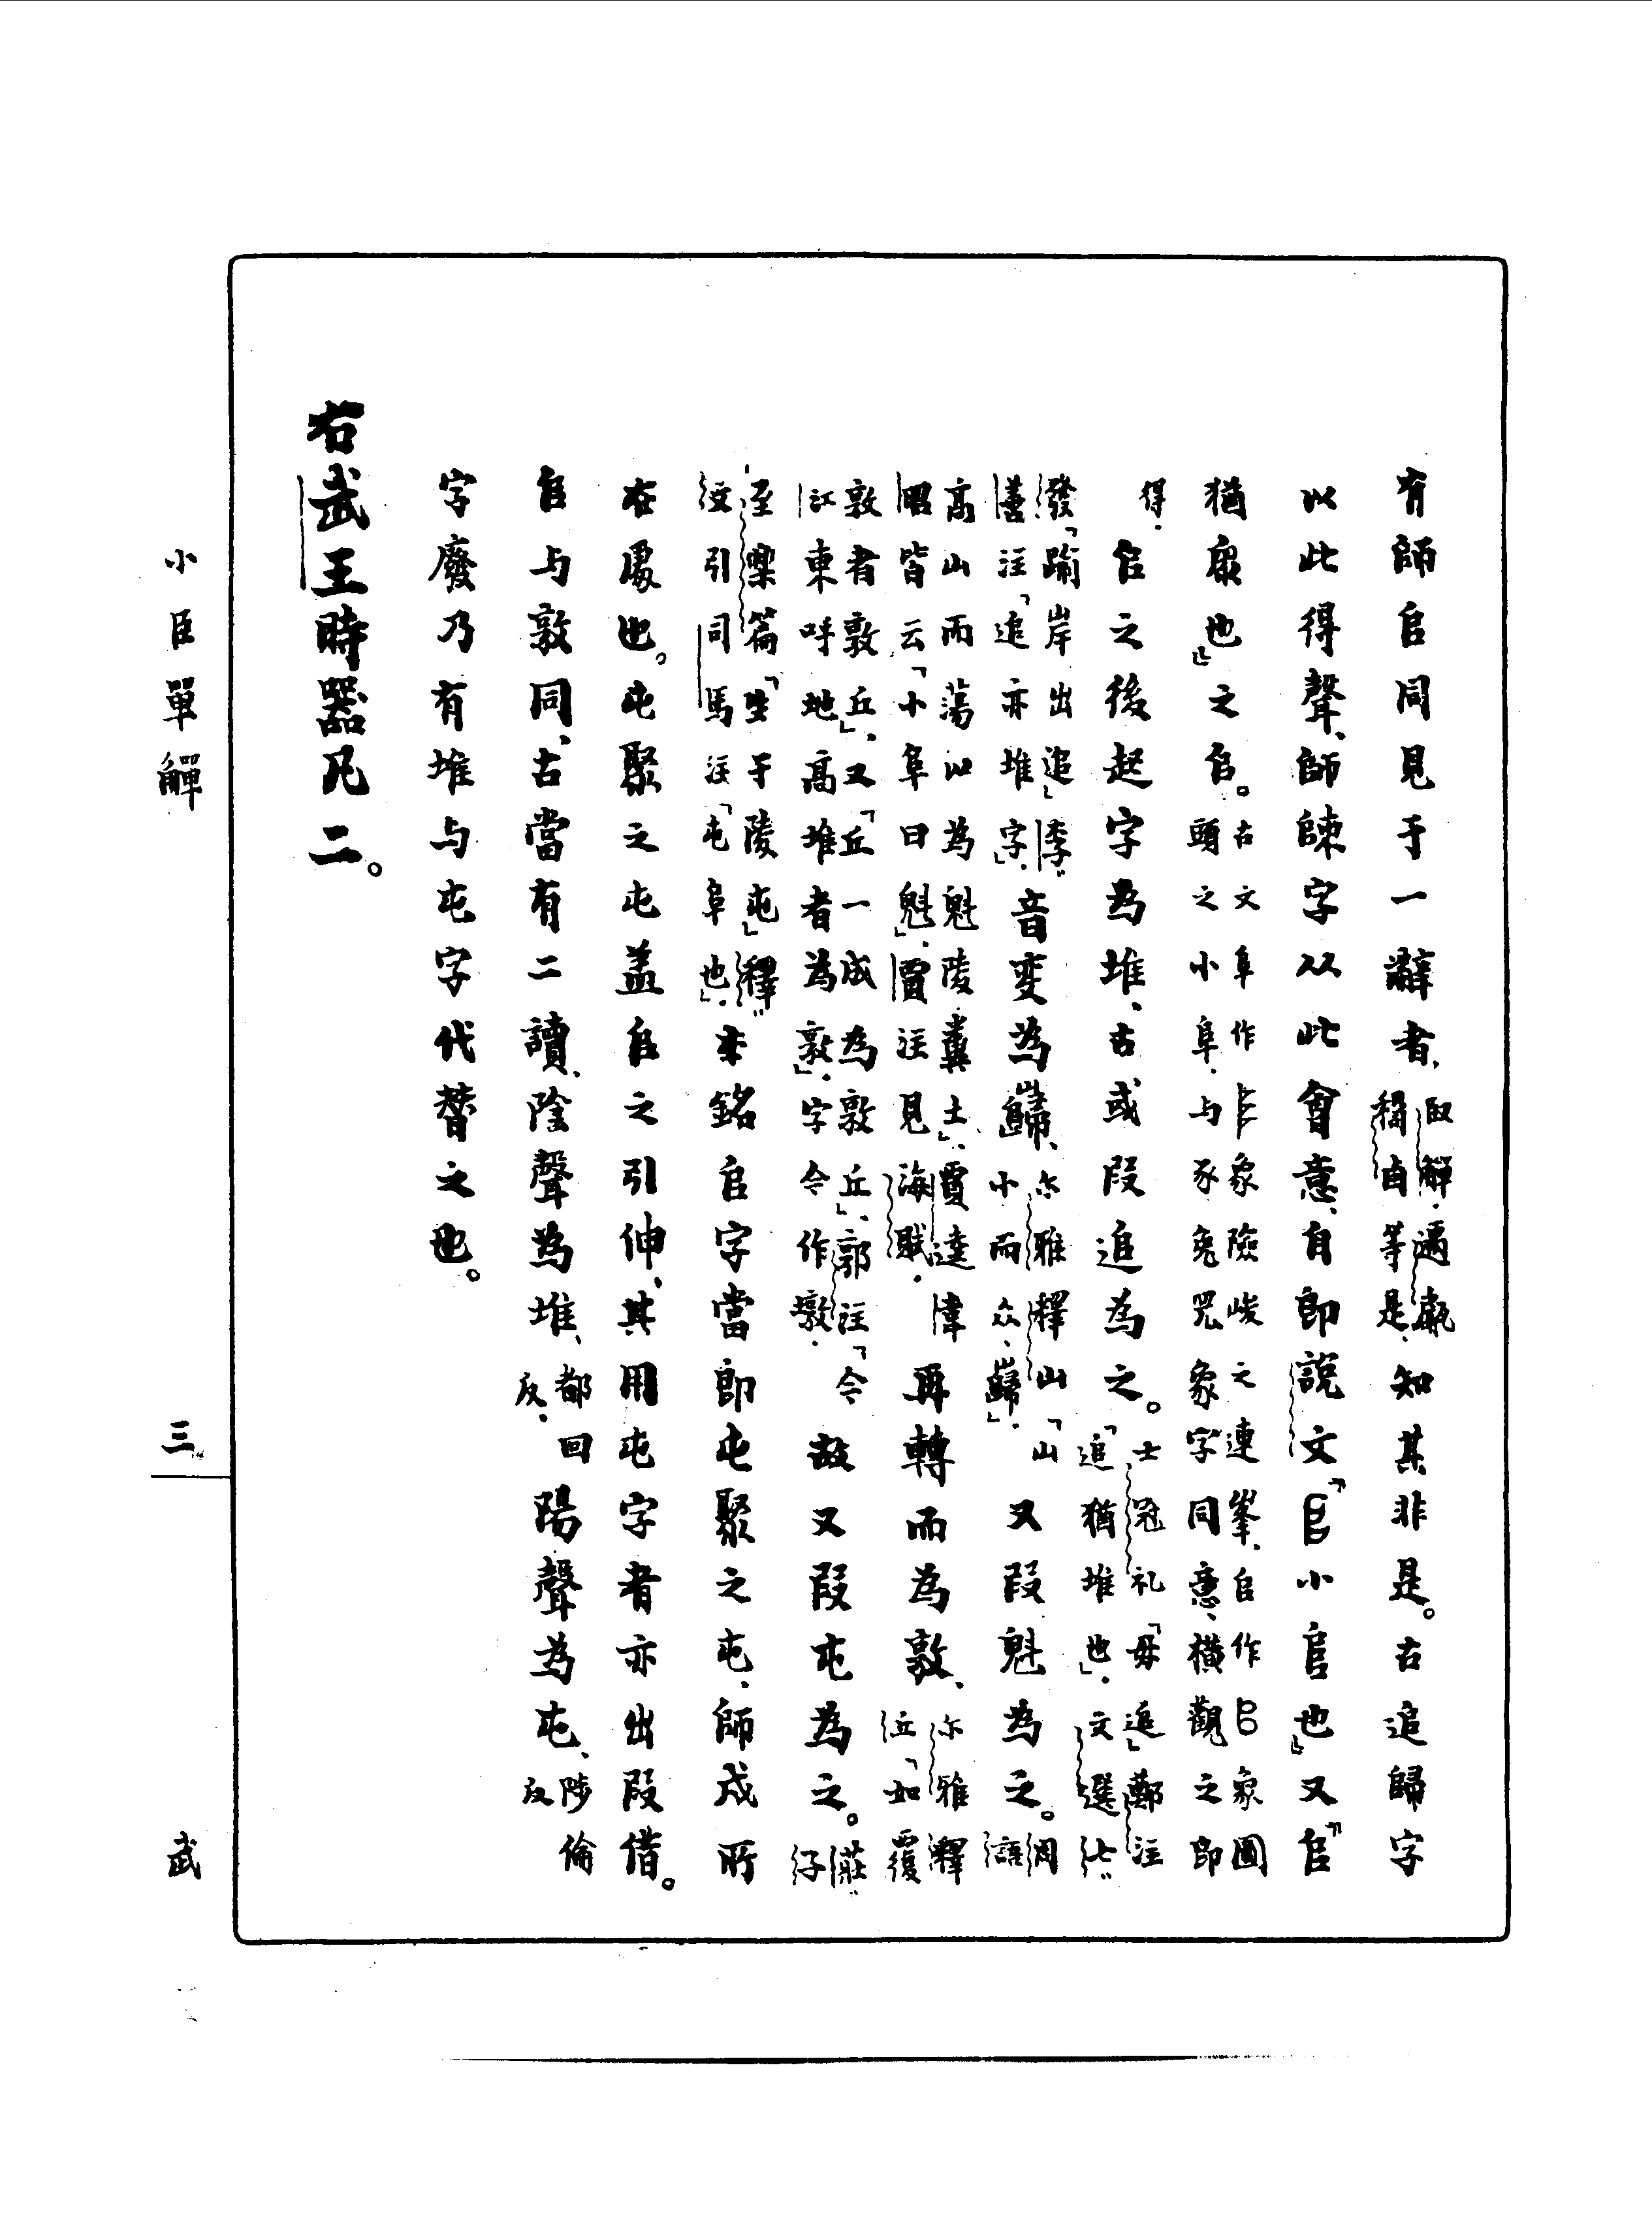 有師𠂤同見于一辭者，臤觶·遇甗·稱卣等是，知其非是。古追歸字
以此得聲、師字从此會意、𠂤即說文『𠂤小𨸏也』又『𠂤
猶眾也』之𠂤。古文阜作𨸏象險峻之連峯、𠂤作𠂤象圓頭之小阜，与豕兔咒象字同意、橫觀之即
得．𠂤之後起字為堆、古或叚追為之。士冠礼「毋追」鄭注「追猶堆也」．文選七
發「踰岸出追」李善注「追亦堆字」．音変為巋、尔雅釋山「山小而众、巋」．又叚魁為之。周語
高山而蕩以為魁陵糞土」．賈逵韋昭皆云「小阜曰魁」．賈注見海賦．再轉而為敦、尔雅釋丘「如覆
敦者敦丘」．又「丘一成為敦丘」．郭注「今江東呼地高堆者為敦」．字今作墩．故又叚屯為之。莊子
至樂篇「生于陵屯」釋文引司馬注「屯阜也」．本銘𠂤字當即屯聚之屯、師戍所
在處也。屯聚之屯盖𠂤之引伸、其用屯字者亦出叚借。
𠂤与敦同、古當有二讀、陰聲為堆、都回反、陽聲為屯、陟倫反
字廢乃有堆与屯字代替之也。
右武王時器凡二。
小臣單觶
三
武